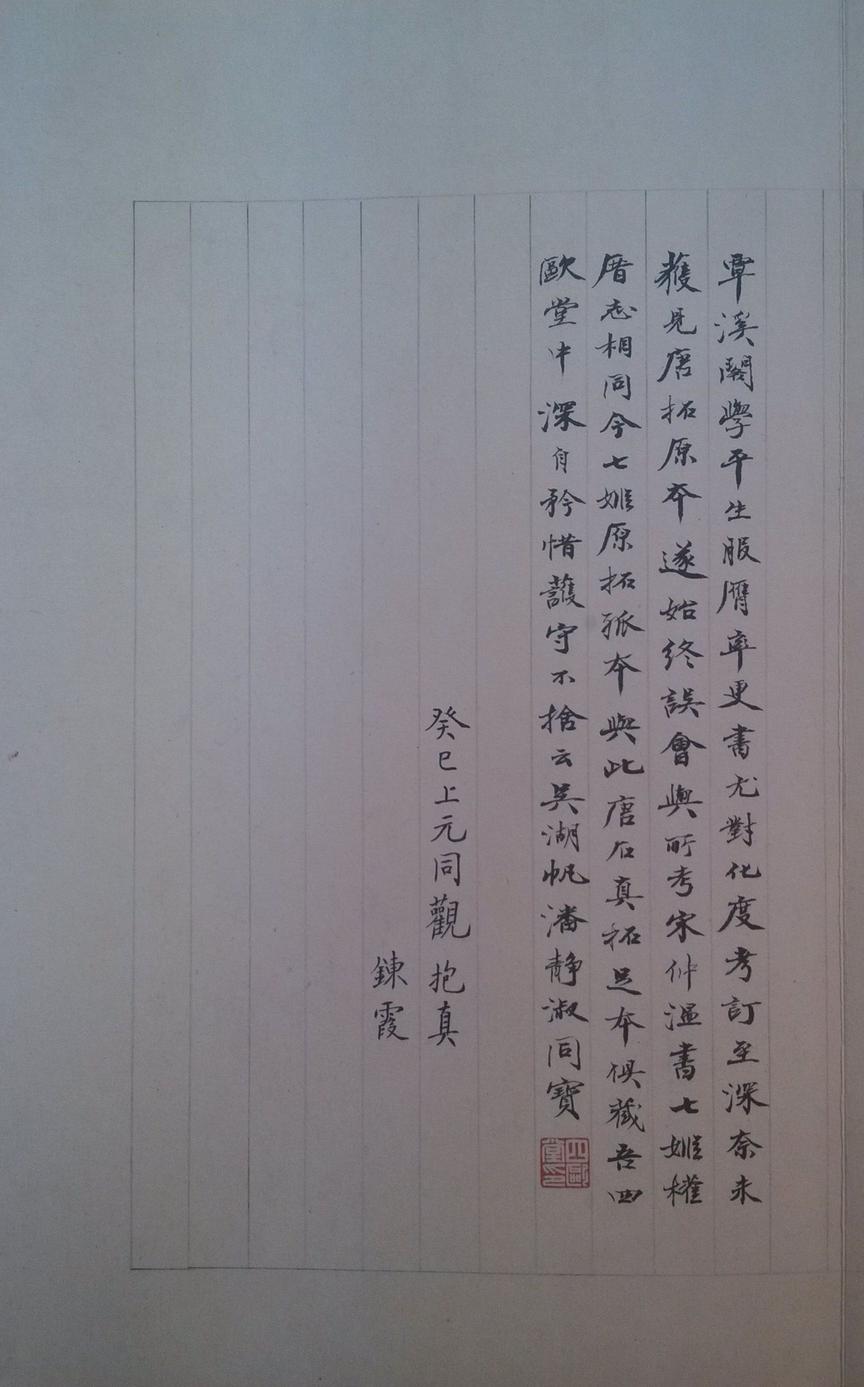 覃溪閣學平生服膺率更書尤對化度考訂至深奈未
獲見唐拓原本遂始終誤會與所考宋仲溫書七姬權
厝志相同今七姬原拓孤本與此唐石真拓足本俱藏吾四
歐堂中深自矜惜護守不捨云吳湖帆潘靜淑同寶
四歐堂印
癸巳上元同觀抱真
鍊霞